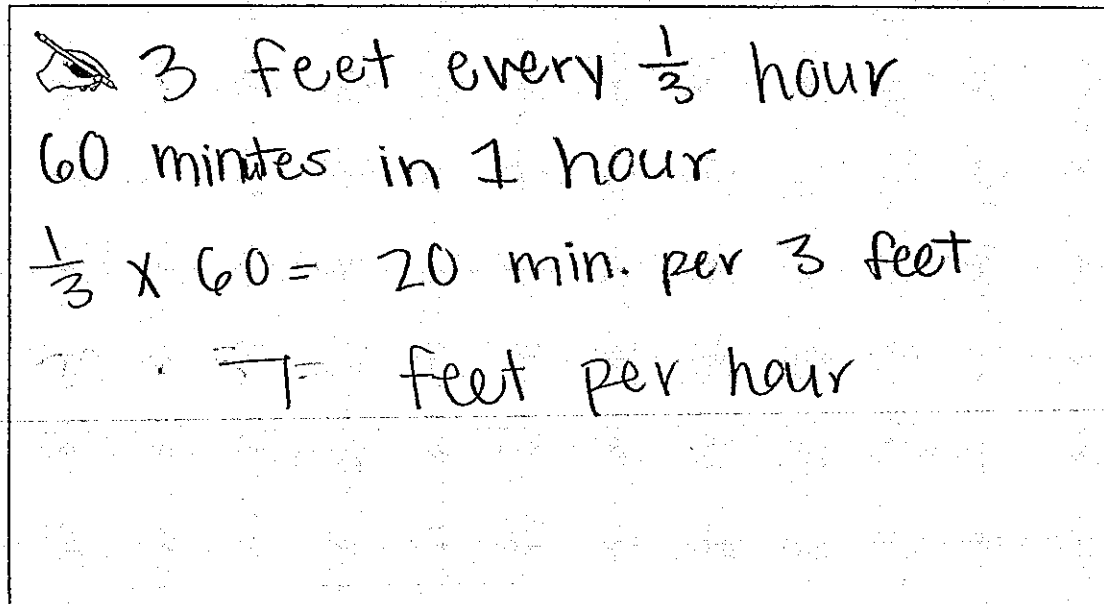 3 feet every 1/3 hour
60 minutes in 1 hour
1/3 x 60 = 20 min. per 3 feet
7 feet per hour